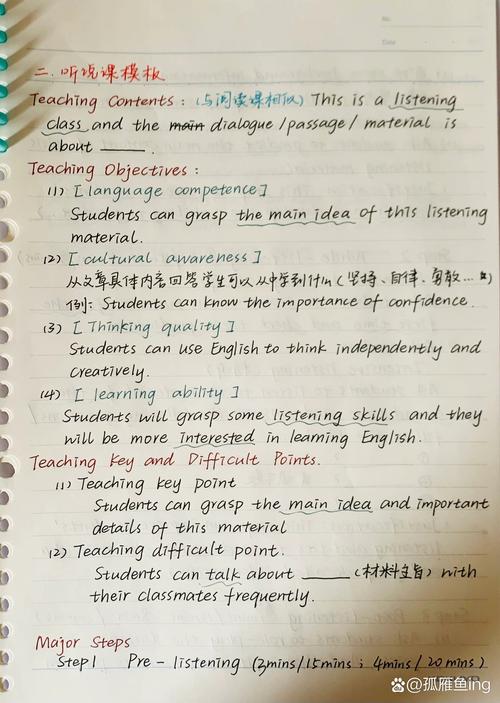 No.
Date
二.听说课模板
Teaching Contents: (与阅读课相似) This is a listening
class and the main dialogue/passage/ material is
about ____.
Teaching Objectives:
(1) [language competence]
Students can grasp the main idea of this listening
material.
(2) [cultural awareness]
从文章具体内容回答学生可以从中学到什么(坚持、自律、勇敢...)
例: Students can know the importance of confidence.
(3) [Thinking quality]
Students can use English to think independently and
creatively.
(4) [learning ability]
Students will grasp some listening skills and they
will be more interested in learning English.
Teaching Key and Difficult Points.
(1) Teaching key point
Students can grasp the main idea and important
details of this material
(2) Teaching difficult point.
Students can talk about ____ (材料主旨) with
their classmates frequently.
Major Steps
Step1 Pre-listening (3mins/15mins; 4mins/20mins)
@孤雁鱼ing